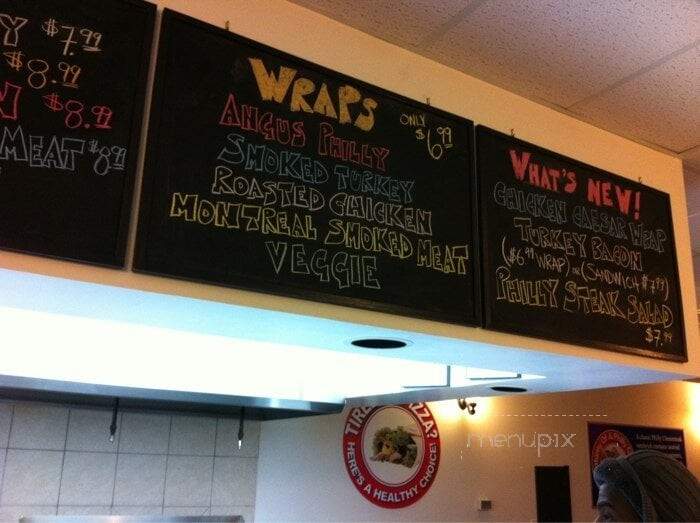 Y $7.99
$8.99
$8.99
MEAT $8.99
WRAPS
ONLY
$6.99
ANGUS PHILLY
SMOKED TURKEY
ROASTED CHICKEN
MONTREAL SMOKED MEAT
VEGGIE
WHAT'S NEW!
CHICKEN CAESAR WRAP
TURKEY BACON
($6.99 WRAP) or (SANDWICH $7.99)
PHILLY STEAK SALAD
$7.99
HERE'S A HEALTHY CHOICE!
menupix